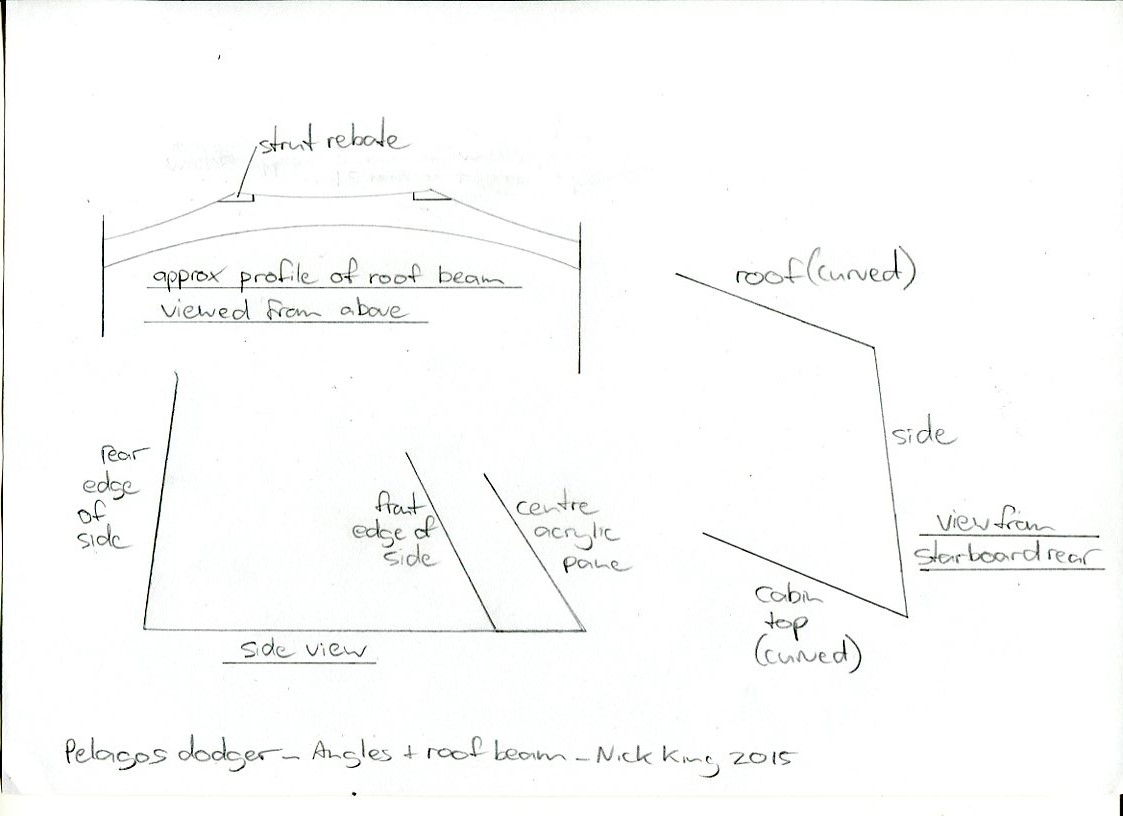 strut rebate
approx profile of roof beam
viewed from above
roof (curved)
side
view from
starboard rear
cabin
top
(curved)
rear
edge
of
side
front
edge of
side
centre
acrylic
pane
side view
Pelagos dodger - Angles + roof beam - Nick King 2015